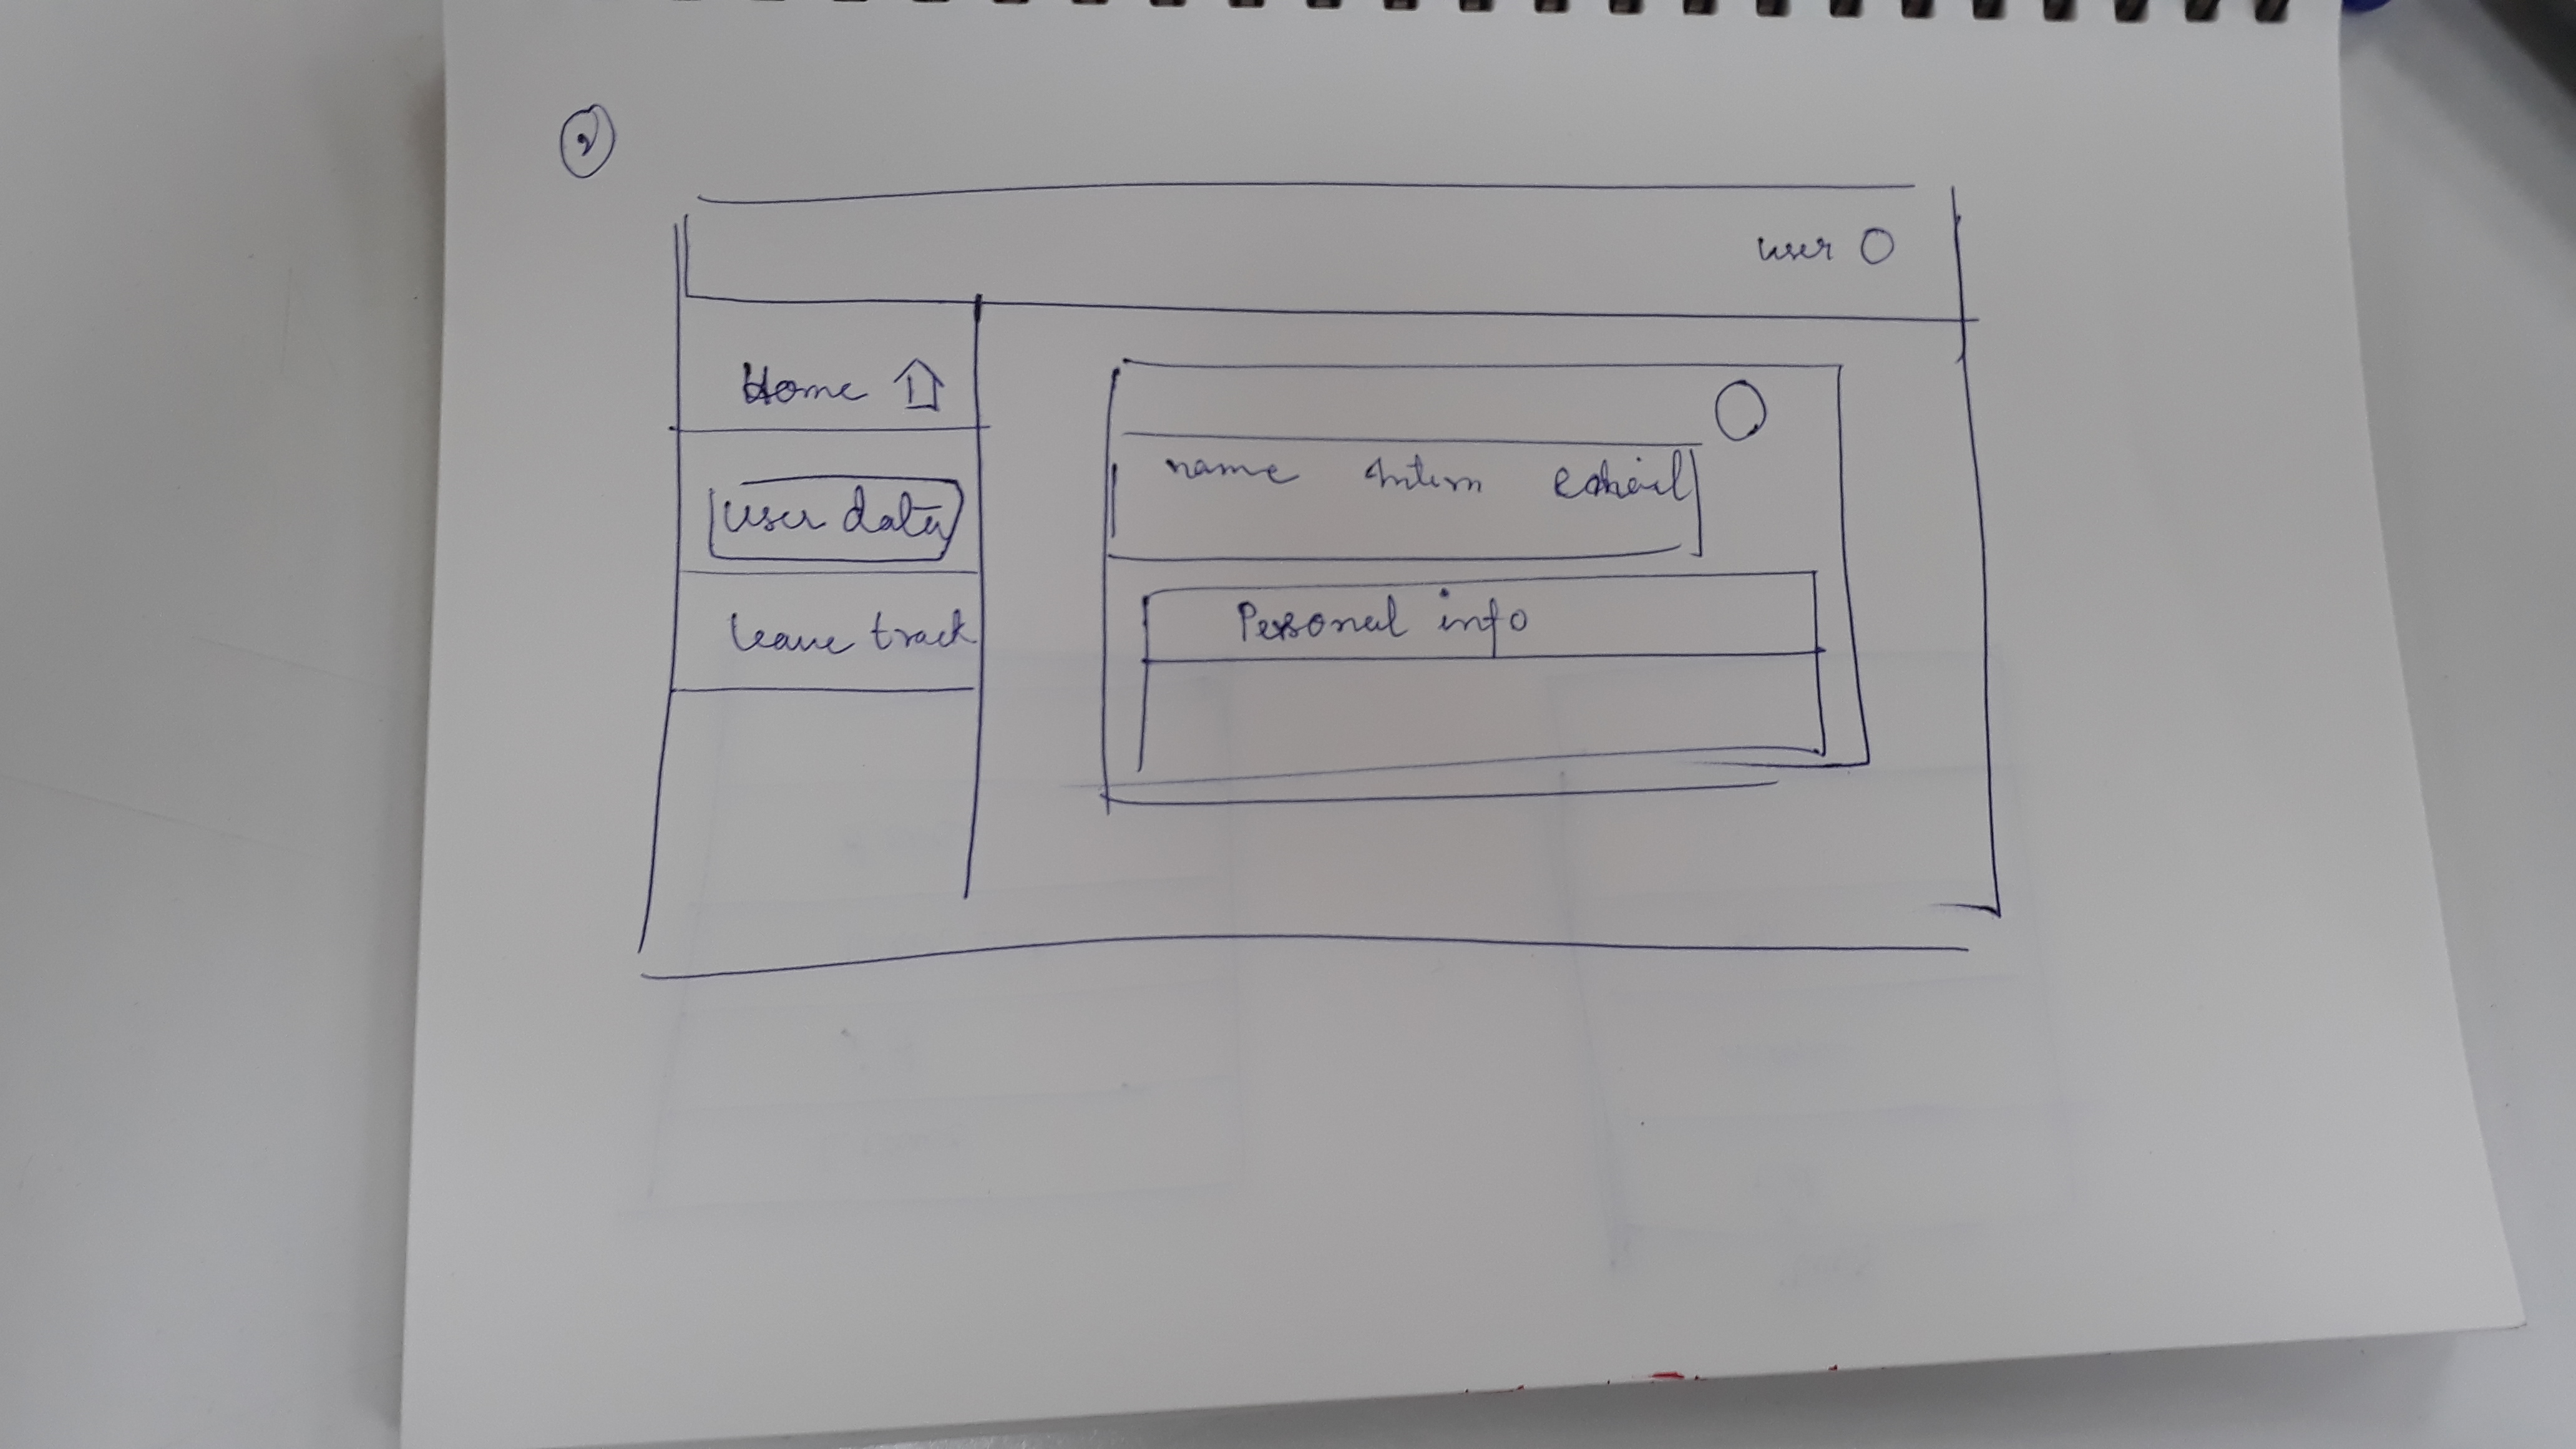 2
user
Home
user data
leave track
name Intern Email
Personal info